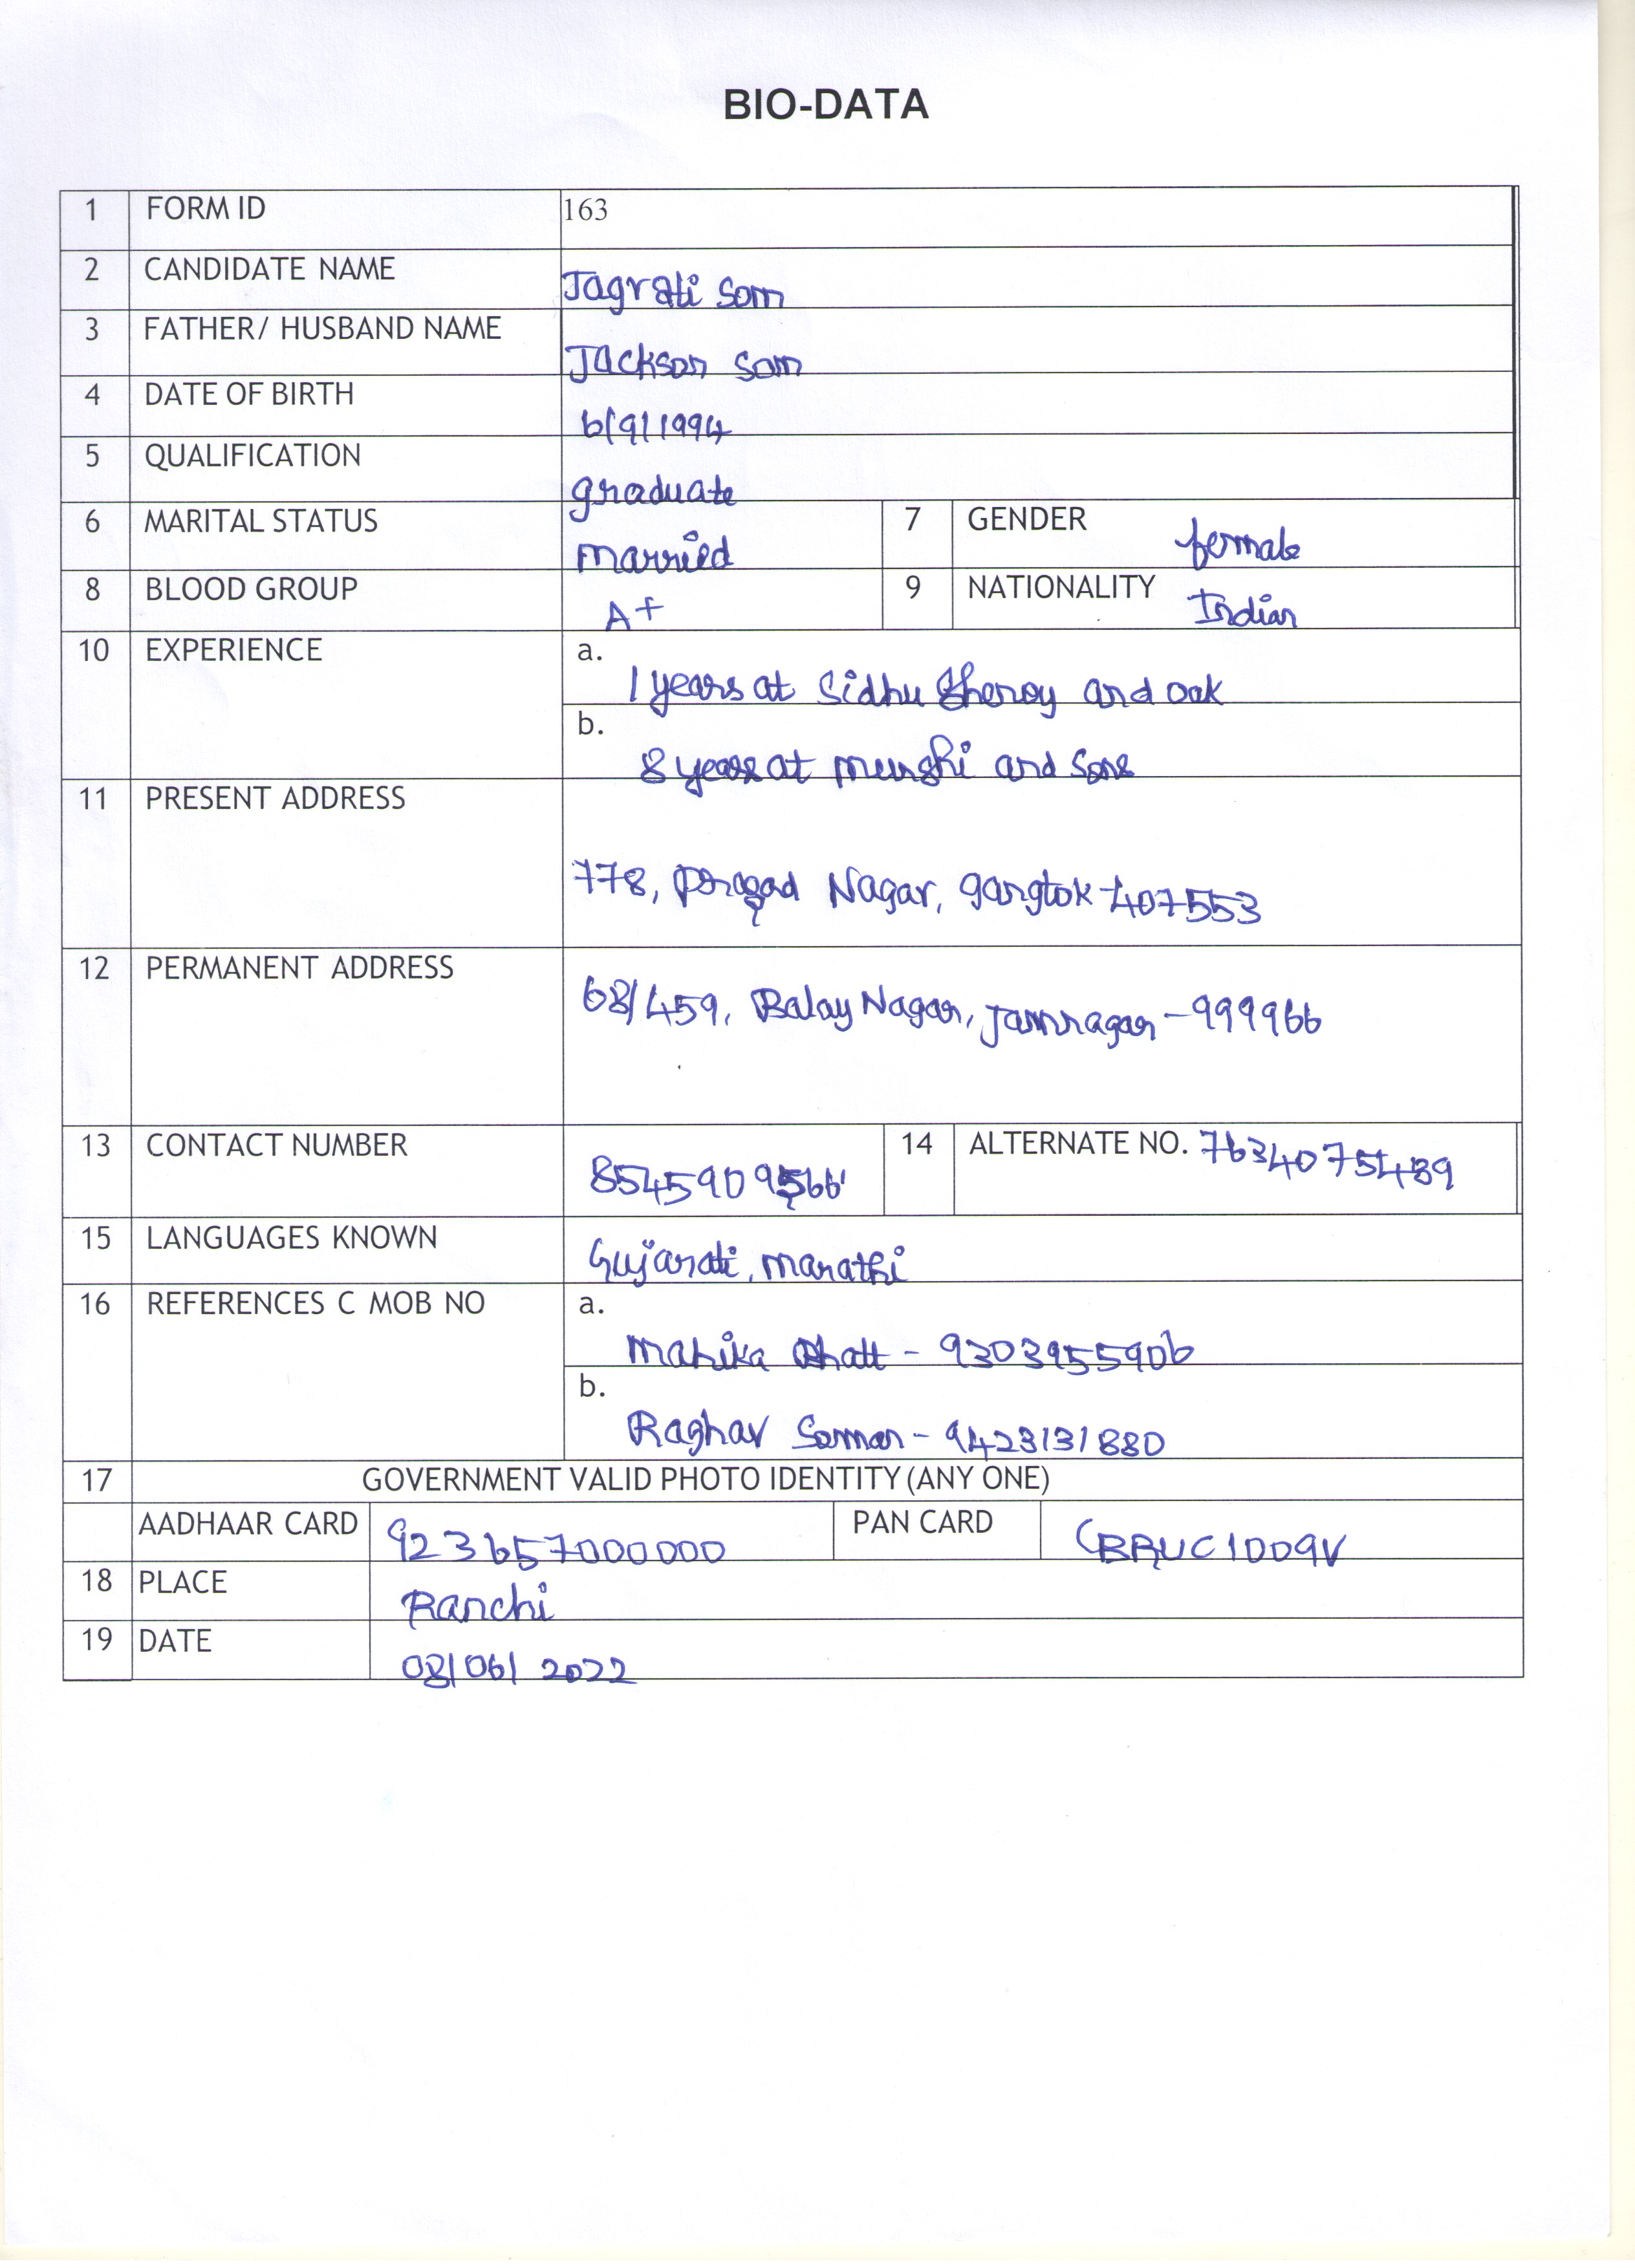 BIO-DATA
1 FORM ID 163
2 CANDIDATE NAME Jagrati Som
3 FATHER/ HUSBAND NAME Jackson Som
4 DATE OF BIRTH 6/9/1994
5 QUALIFICATION graduate
6 MARITAL STATUS married 7 GENDER female
8 BLOOD GROUP A+ 9 NATIONALITY Indian
10 EXPERIENCE a. 1 years at Sidhu Shenoy and oak
b. 8 years at munshi and Sons
11 PRESENT ADDRESS
778, Nagar, gangtok-407553
12 PERMANENT ADDRESS 68/459, Balay Nagar, Jamnagar-999966
13 CONTACT NUMBER 8545909566 14 ALTERNATE NO. 7634075489
15 LANGUAGES KNOWN Gujarati, marathi
16 REFERENCES C MOB NO a. mahika - 9303955906
b. Raghav - 9423131880
17 GOVERNMENT VALID PHOTO IDENTITY(ANY ONE)
AADHAAR CARD 923657000000 PAN CARD CBRUC1009V
18 PLACE Ranchi
19 DATE 08/06/2022